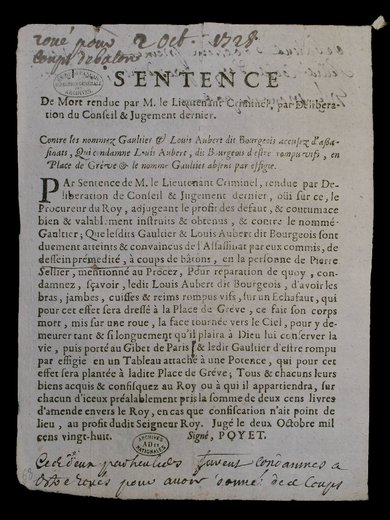 roue pour 2 oct. 1728
coups de baton
SENTENCE
De Mort rendue par M. le Lieutenant Criminel, par Délibe-
ration du Conseil & Jugement dernier.
Contre les nommez Gaultier & Louis Aubert dit Bourgeois accusez d'assa-
sinats, Qui condamne Louis Aubert, dit Bourgeois d'estre rompu vifs, en
Place de Gréve & le nommé Gaultier absent par effigie.
PAr Sentence de M. le Lieutenant Criminel, rendue par De-
liberation de Conseil & Jugement dernier, oüi sur ce, le
Procureur du Roy, adjugeant le profit des défaut, & coutumace
bien & valablement instruits & obtenus, & contre le nommé
Gaultier; Que lesdits Gaultier & Louis Aubert dit Bourgeois sont
duement atteints & convaincus de l'Assassinat par eux commis, de
dessein prémedité, à coups de bâtons, en la personne de Pierre
Sellier, mentionné au Procez, Pour réparation de quoy, con-
damnez, sçavoir, ledit Louis Aubert dit Bourgeois, d'avoir les
bras, jambes, cuisses & reims rompus vifs, sur un Echafaut, qui
pour cet effet sera dressé à la Place de Gréve, ce fait son corps
mort, mis sur une roue, la face tournée vers le Ciel, pour y de-
meurer tant & si longuement qu'il plaira à Dieu lui conserver la
vie, puis porté au Gibet de Paris & ledit Gaultier d'estre rompu
par effigie en un Tableau attaché à une Potence, qui pour cet
effet sera plantée à ladite Place de Gréve; Tous & chacuns leurs
biens acquis & confisquez au Roy ou à qui il appartiendra, sur
chacun d'iceux préalablement pris la somme de deux cens livres
d'amende envers le Roy, en cas que confiscation n'ait point de
lieu, au profit dudit Seigneur Roy. Jugé le deux Octobre mil
cens vingt-huit. Signé, POYET.
ARCHIVES
NATIONALES
Ces deux particuliers furent condamnes a
estre roués pour avoir donné de coups